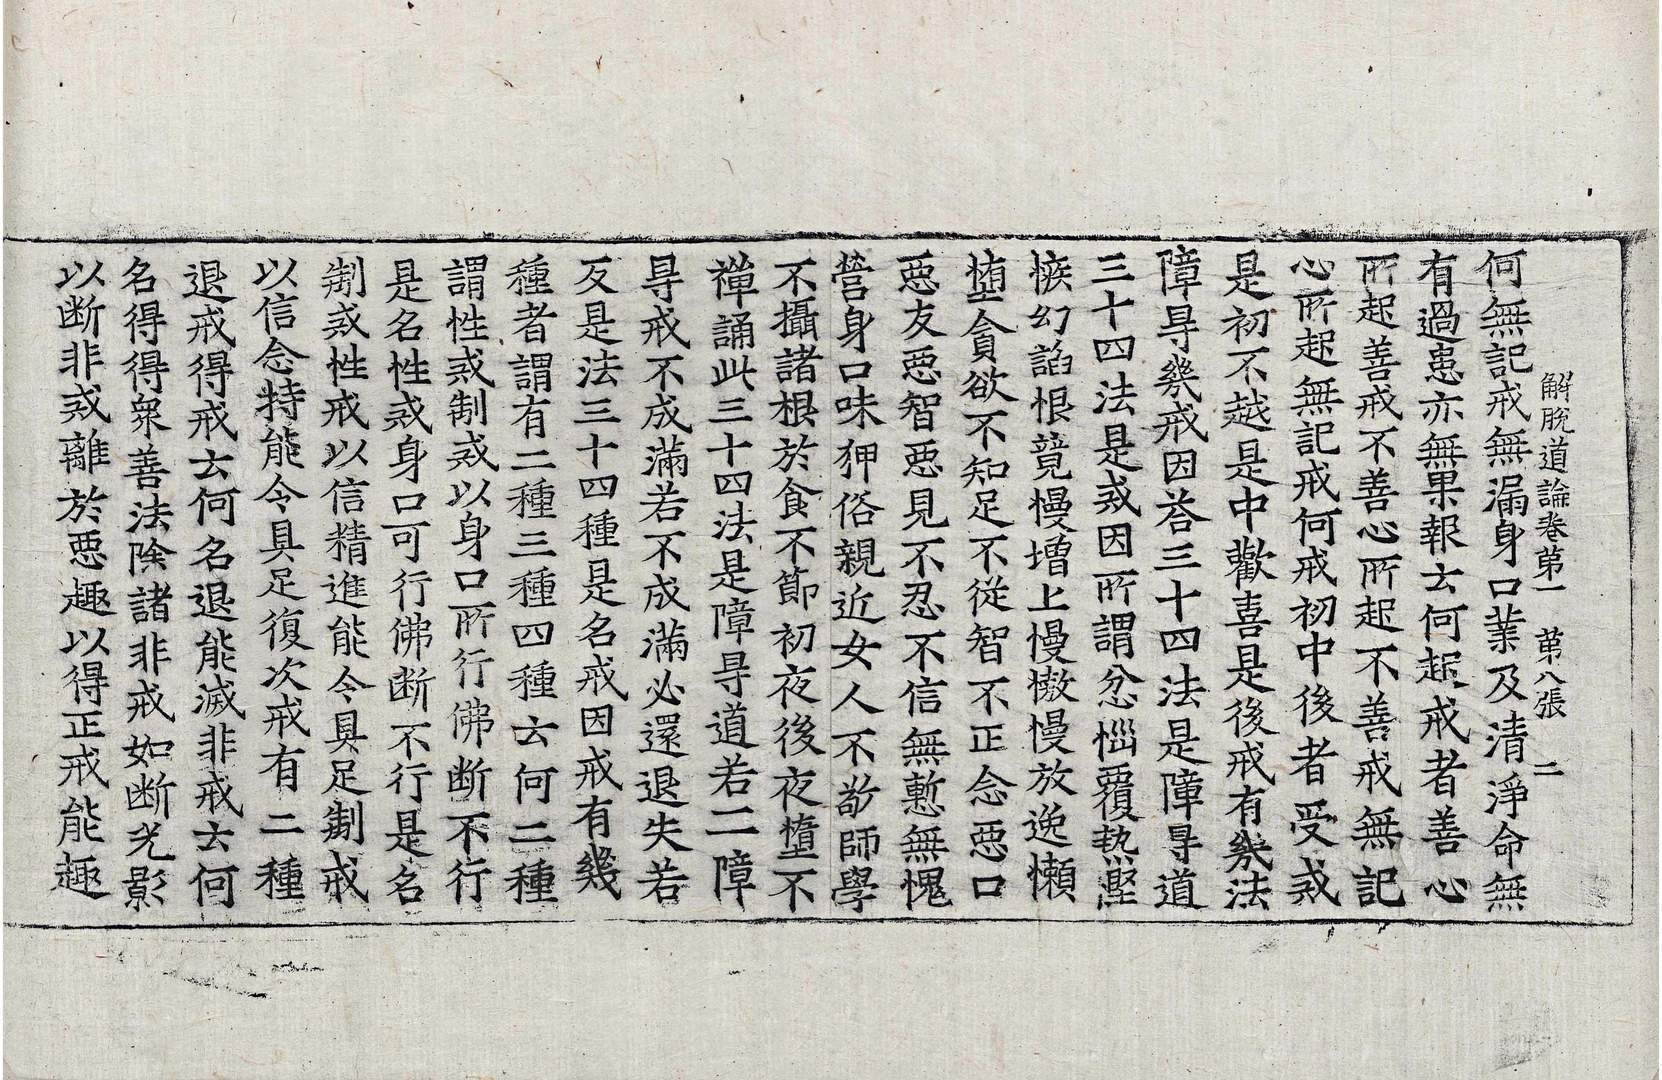 解脫道論卷第一 第八張 二
何無記戒無漏身口業及清淨命無
有過患亦無果報云何起戒者善心
所起善戒不善心所起不善戒無記
心所起無記戒何戒初中後者受戒
是初不越是中歡喜是後戒有幾法
障㝵幾戒因荅三十四法是障㝵道
三十四法是戒因所謂忿惱覆熱慳
嫉幻諂恨競慢增上慢慠慢放逸懶
墮貪欲不知足不從智不正念惡口
惡友惡智惡見不忍不信無慙無愧
營身口味狎俗親近女人不敬師學
不攝諸根於食不節初夜後夜墮不
禪誦此三十四法是障㝵道若一一障
㝵戒不成滿若不成滿必還退失若
反是法三十四種是名戒因戒有幾
種者謂有二種三種四種云何二種
謂性戒制戒以身口所行佛断不行
是名性戒身口可行佛断不行是名
制戒性戒以信精進能令具足制戒
以信念特能令具足復次戒有二種
退戒得戒云何名退能滅非戒云何
名得得衆善法除諸非戒如断光影
以断非戒離於惡趣以得正戒能趣